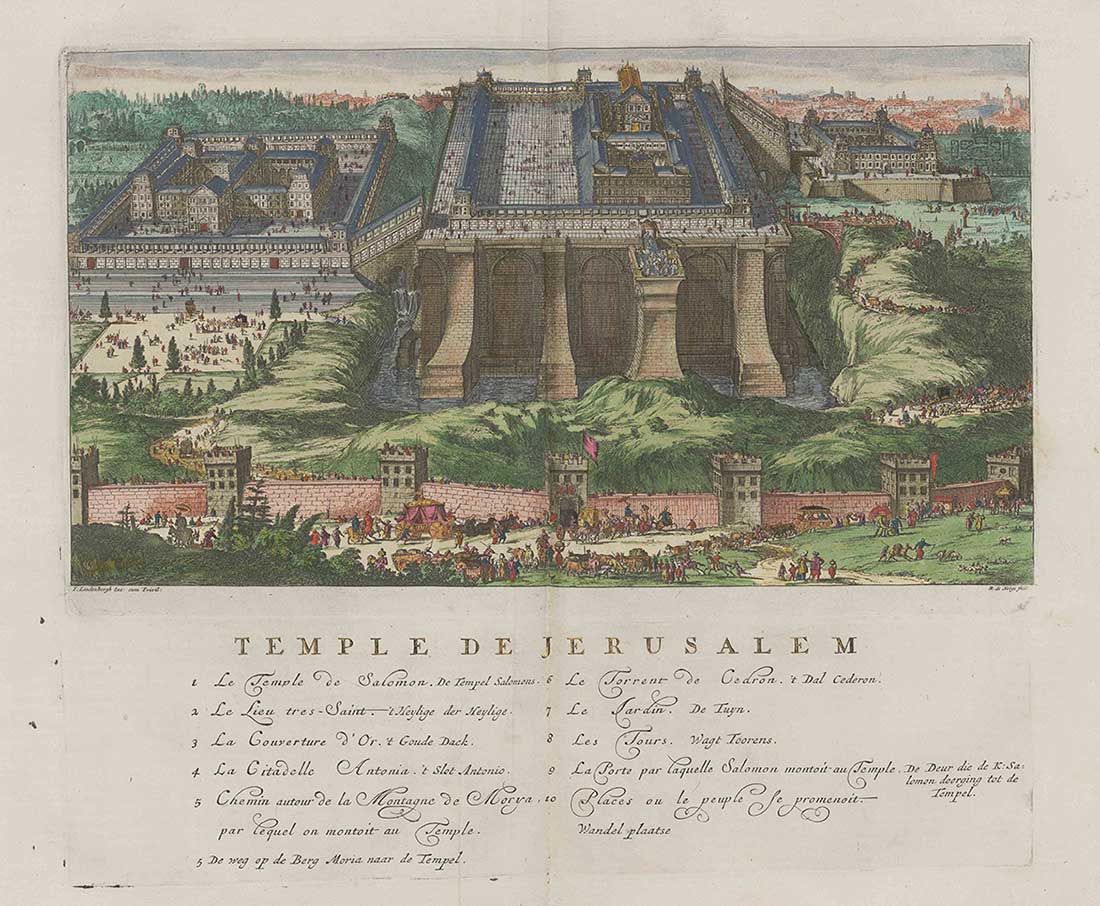 I. Lindenbergh Exc. cum Privil:
R. de Hooge fecit
TEMPLE DE JERUSALEM
1 Le Temple de Salomon. De Tempel Salomons.
2 Le Lieu tres-Saint. 't Heylige der Heylige.
3 La Couverture d'Or. 't Goude Dack.
4 La Citadelle Antonia. 't Slot Antonio.
5 Chemin autour de la Montagne de Morya,
par lequel on montoit au Temple.
5 De weg op de Berg Moria naar de Tempel.
6 Le Torrent de Cedron. 't Dal Cederon.
7 Le Jardin. De Tuyn.
8 Les Tours. Wagt Toorens.
9 La Porte par laquelle Salomon montoit au Temple. De Deur die de K: Sa-
lomon doorging tot de
Tempel.
10 Places ou le peuple se promenoit.
Wandel plaatse